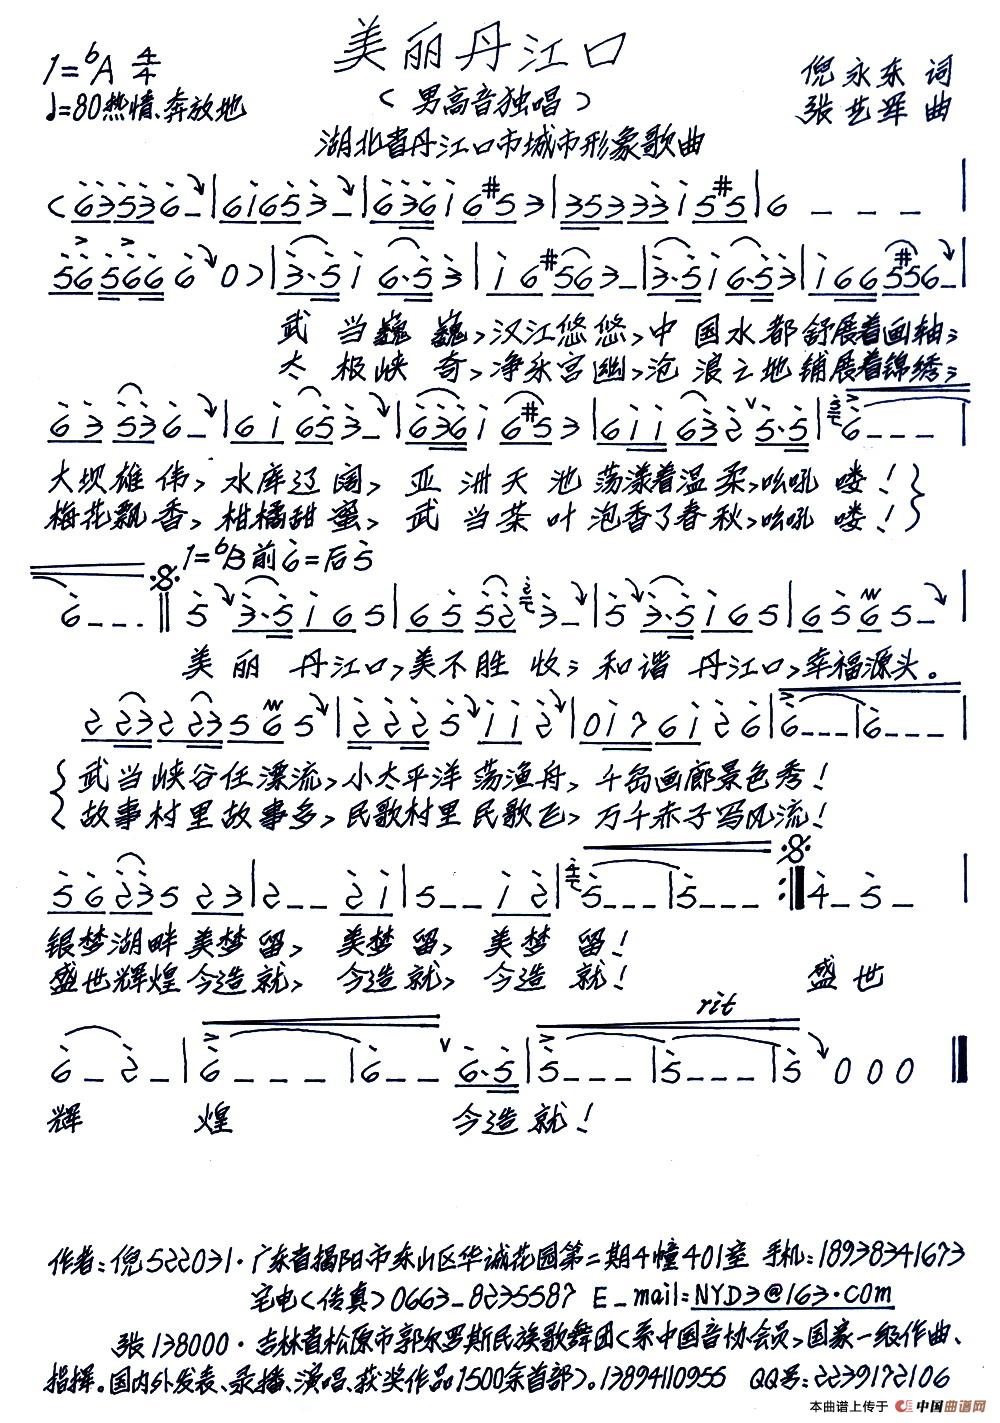 美丽丹江口
1=♭A 4/4
倪永东 词
♩=80 热情、奔放地
(男高音独唱)
张艺军 曲
湖北省丹江口市城市形象歌曲
武当巍巍,汉江悠悠,中国水都舒展着画轴;
太极峡奇,净乐宫幽,沧浪之地铺展着锦绣;
大坝雄伟,水库辽阔,亚洲天池荡漾着温柔,吆吼喽!
梅花飘香,柑橘甜蜜,武当茶叶泡香了春秋,吆吼喽!
1=♭B前6=后5
美丽丹江口,美不胜收;和谐丹江口,幸福源头。
武当峡谷任漂流,小太平洋荡渔舟,千岛画廊景色秀!
故事村里故事多,民歌村里民歌飞,万千赤子写风流!
银梦湖畔美梦留,美梦留,美梦留!
盛世辉煌今造就,今造就,今造就! 盛世
rit
辉 煌 今造就!
作者:倪522031·广东省揭阳市东山区华诚花园第二期4幢401室 手机:18938341673
宅电(传真)0663-8235587 E-mail=NYD3@163.com
张138000·吉林省松原市郭尔罗斯民族歌舞团(系中国音协会员,国家一级作曲、
指挥。国内外发表、录播、演唱、获奖作品1500余首部)。13894110955 QQ号:2239172106
本曲谱上传于 中国曲谱网